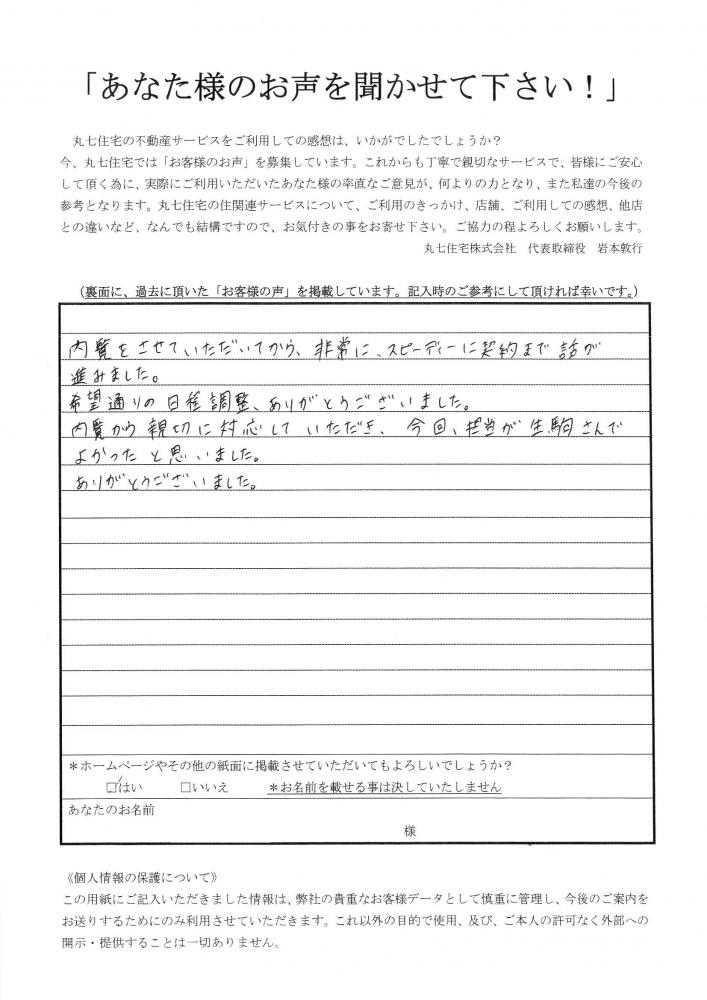 「あなた様のお声を聞かせて下さい！」
丸七住宅の不動産サービスをご利用しての感想は、いかがでしたでしょうか？
今、丸七住宅では「お客様のお声」を募集しています。これからも丁寧で親切なサービスで、皆様にご安心
して頂く為に、実際にご利用いただいたあなた様の率直なご意見が、何よりの力となり、また私達の今後の
参考となります。丸七住宅の住関連サービスについて、ご利用のきっかけ、店舗、ご利用しての感想、他店
との違いなど、なんでも結構ですので、お気付きの事をお寄せ下さい。ご協力の程よろしくお願いします。
丸七住宅株式会社　代表取締役　岩本敦行
（裏面に、過去に頂いた「お客様の声」を掲載しています。記入時のご参考にして頂ければ幸いです。）
内覧をさせていただいてから、非常に、スピーディーに契約まで話が
進みました。
希望通りの日程調整、ありがとうございました。
内覧から親切に対応していただき、今回、担当が生駒さんで
よかったと思いました。
ありがとうございました。
＊ホームページやその他の紙面に掲載させていただいてもよろしいでしょうか？
☑はい　□いいえ　＊お名前を載せる事は決していたしません
あなたのお名前
様
《個人情報の保護について》
この用紙にご記入いただきました情報は、弊社の貴重なお客様データとして慎重に管理し、今後のご案内を
お送りするためにのみ利用させていただきます。これ以外の目的で使用、及び、ご本人の許可なく外部への
開示・提供することは一切ありません。